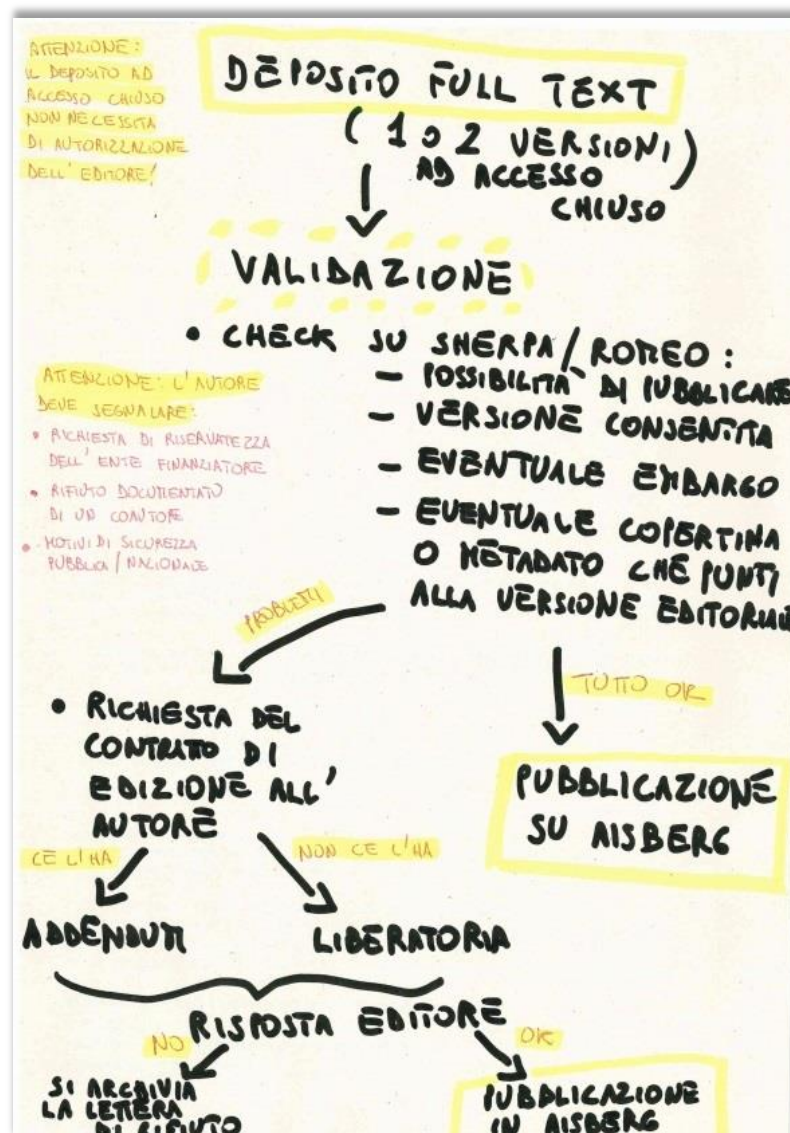 ATTENZIONE:
IL DEPOSITO AD
ACCESSO CHIUSO
NON NECESSITA
DI AUTORIZZAZIONE
DELL'EDITORE!
DEPOSITO FULL TEXT
(1 O 2 VERSIONI)
AD ACCESSO
CHIUSO
VALIDAZIONE
• CHECK SU SHERPA/ROMEO:
– POSSIBILITÀ DI PUBBLICARE
– VERSIONE CONSENTITA
– EVENTUALE EMBARGO
– EVENTUALE COPERTINA
O METADATO CHE PUNTI
ALLA VERSIONE EDITORIALE
ATTENZIONE: L'AUTORE
DEVE SEGNALARE:
• RICHIESTA DI RISERVATEZZA
DELL'ENTE FINANZIATORE
• RIFIUTO DOCUMENTATO
DI UN COAUTORE
• MOTIVI DI SICUREZZA
PUBBLICA/NAZIONALE
PROBLEMI
TUTTO OK
• RICHIESTA DEL
CONTRATTO DI
EDIZIONE ALL'
AUTORE
PUBBLICAZIONE
SU AISBERG
CE L'HA
NON CE L'HA
ADDENDUM
LIBERATORIA
RISPOSTA EDITORE
NO
OK
SI ARCHIVIA
LA LETTERA
DI RIFIUTO
PUBBLICAZIONE
IN AISBERG